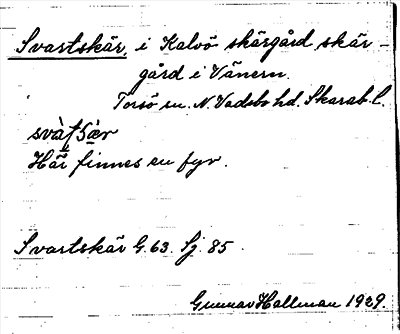 Svartskär, i Kalvö skärgård skär-
gård i Vänern.
Torsö sn. N. Vadsbo hd. Skarab. l.
Här finnes en fyr.
Svartskär G. 63. Sj. 85.
Gunnar Hallman 1929.